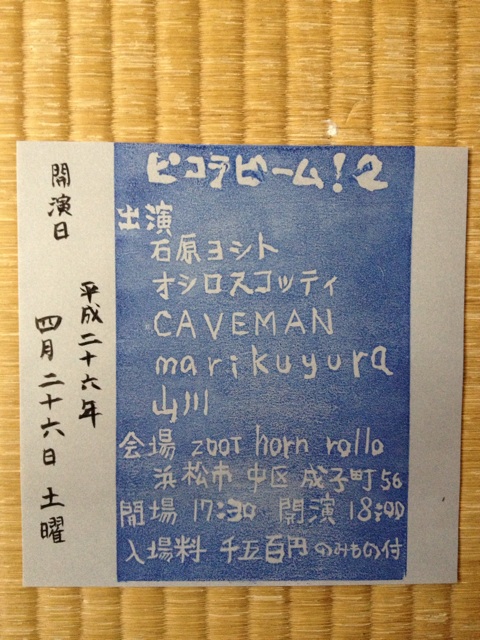 ピコラビーム!2
出演
石原ヨシト
オシロスコッティ
CAVEMAN
marikuyura
山川
会場 ZOOT horn rollo
浜松市 中区 成子町 56
開場 17:30 開演 18:00
入場料 千五百円 のみもの付
開演日
平成二十六年
四月二十六日 土曜